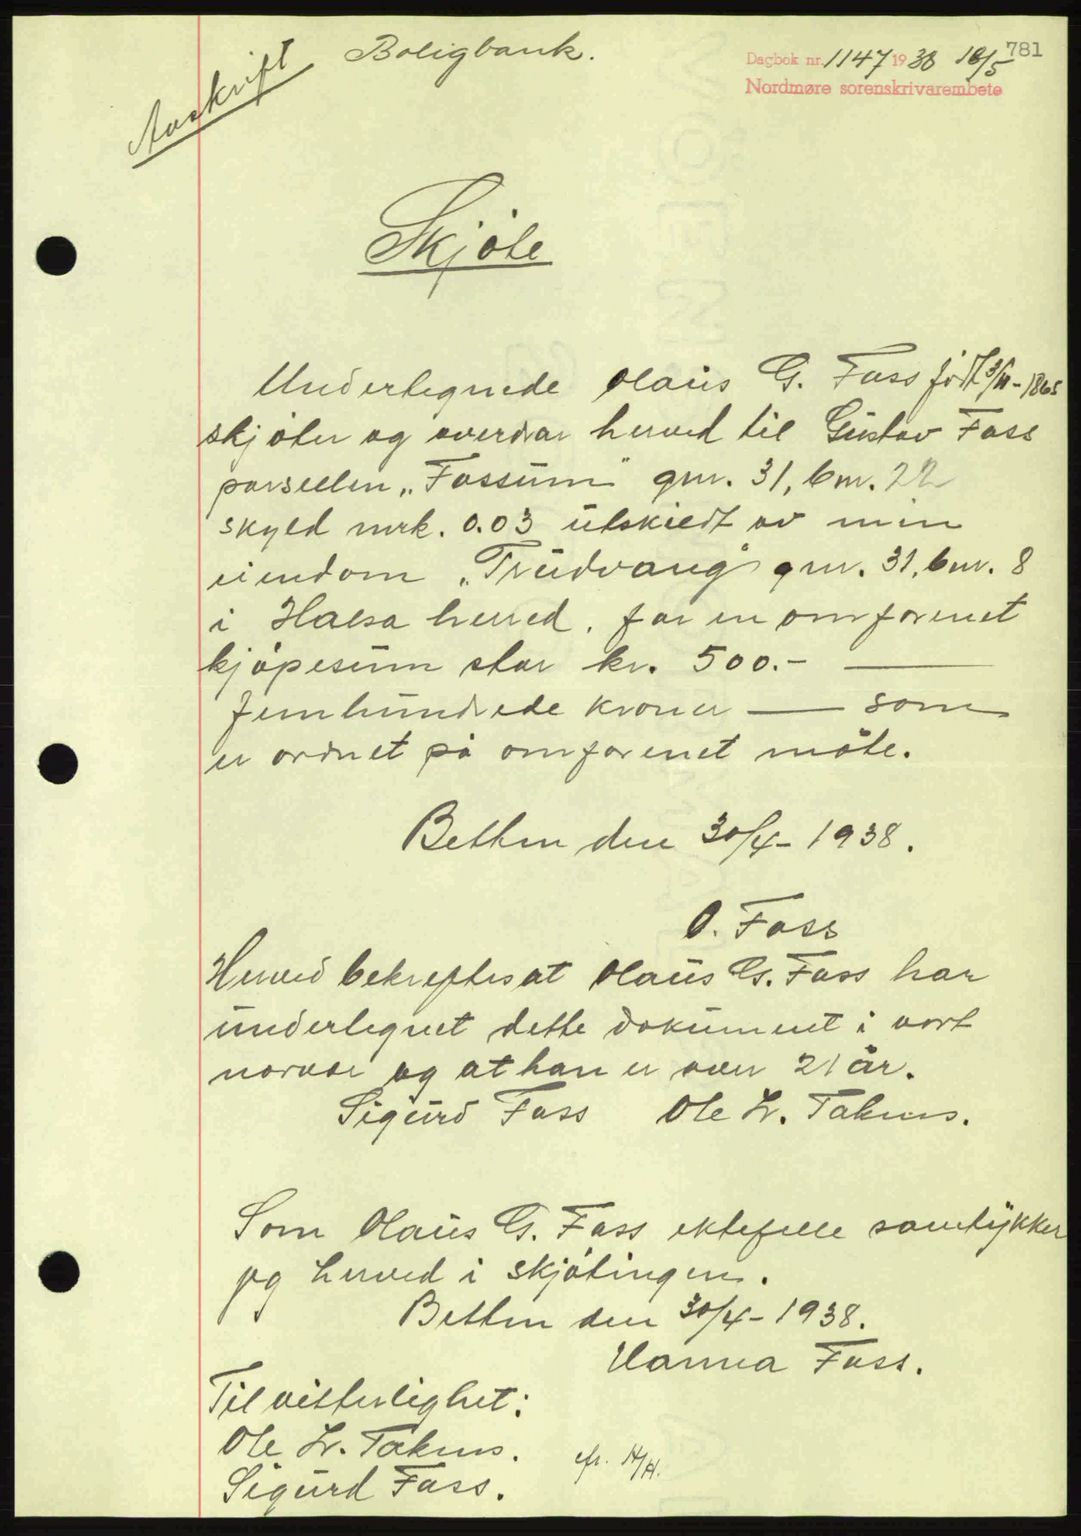 Avskrift
Boligbank.
Dagbok nr. 1147 1938 16/5
781
Nordmøre sorenskrivarembete
Skjöte
Underlegnede Olaus G. Fass född 3/11-1865
skjöter og overdrar herved til Gustav Fass
parsellen „Fassum" gnr. 31, bnr. 22
skyld mrk. 0.03 utskiedt av min
eiendom „Trudvang" gnr. 31, bnr. 8
i Halsa herred, for en omforenet
kjöpesum stor kr. 500.-
femhundrede kroner — som
er ordnet på omforenet måte.
Betten den 30/4- 1938.
O. Fass
Herved bekreftes at Olaus G. Fass har
underlegnet dette dokument i vort
nærvær og at han er over 21 år.
Sigurd Fass Ole Lr. Taknes.
Som Olaus G. Fass ektefelle samtykker
jeg herved i skjötingen.
Betten den 30/4- 1938.
Hanna Fass.
Til vitterlighet:
Ole Lr. Taknes.
Sigurd Fass.